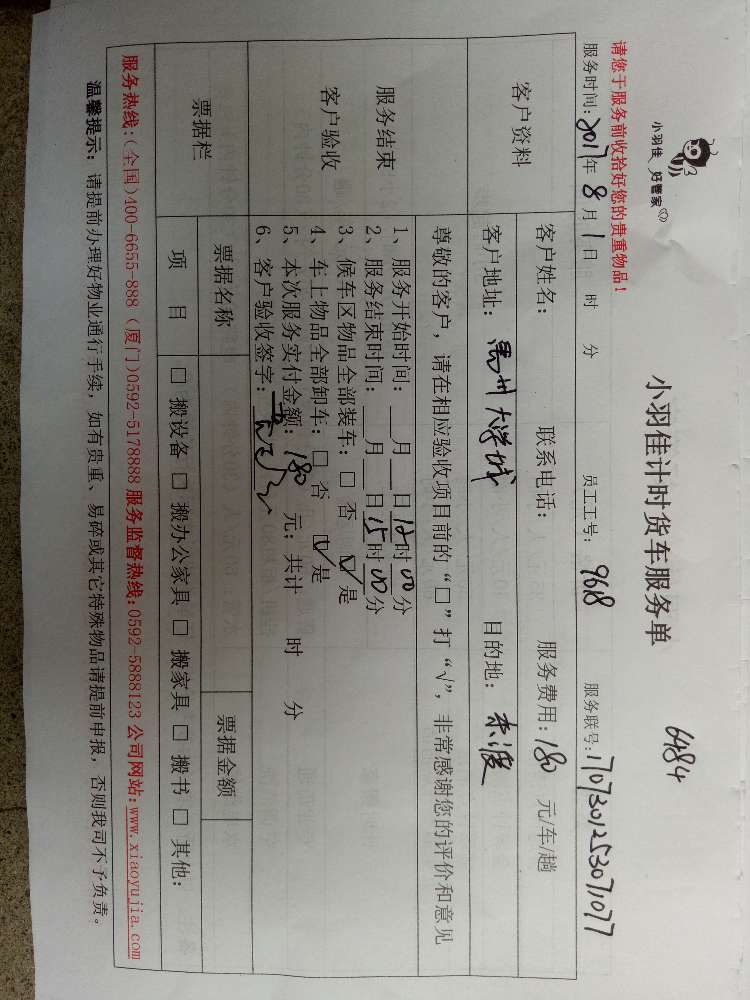 小羽佳 好管家
小羽佳计时货车服务单
6484
请您于服务前收拾好您的贵重物品！
服务时间：2017年8月1日 时 分 员工工号：9618 服务联号：170730125307077
客户资料
客户姓名： 联系电话： 服务费用：180 元/车/趟
客户地址： 大学城 目的地：
服务结束
客户验收
尊敬的客户，请在相应验收项目前的“□”打“√”，非常感谢您的评价和意见
1、服务开始时间：__月__日12时00分
2、服务结束时间：__月__日15时00分
3、候车区物品全部装车：□ 否 ☑ 是
4、车上物品全部卸车：□ 否 ☑ 是
5、本次服务实付金额：180 元；共计 时 分
6、客户验收签字：
票据栏
票据名称 票据金额
项 目 □ 搬设备 □ 搬办公家具 □ 搬家具 □ 搬书 □ 其他：
服务热线：(全国)400-6655-888 (厦门)0592-5178888 服务监督热线：0592-5888123 公司网站：www.xiaoyujia.com
温馨提示：请提前办理好物业通行手续，如有贵重、易碎或其它特殊物品请提前申报，否则我司不予负责。